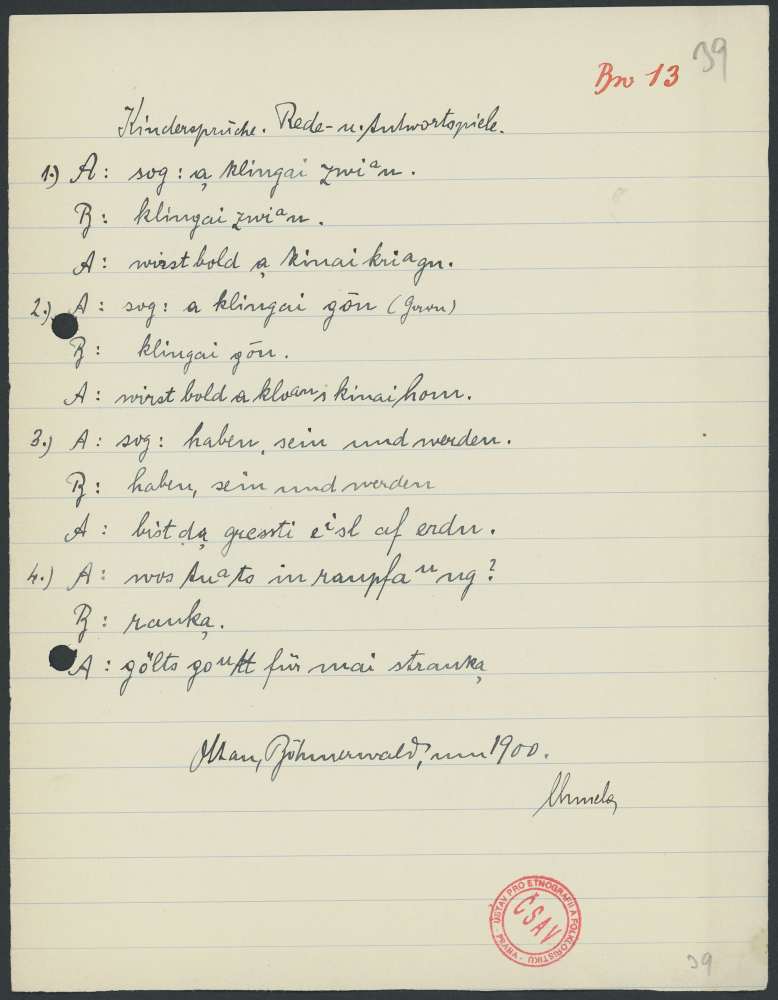 39
Bw 13
Kindersprüche. Rede- u. Antwortspiele.
1.) A: sog: ạ klingai zwiᵃn.
B: klingai zwiᵃn.
A: wirst bold ạ kinai kriᵃgn.
2.) A: sog: a klingai gōn (Garn)
B: klingai gōn.
A: wirst bold a kloans kinai hom.
3.) A: sog: haben, sein und werden.
B: haben, sein und werden
A: bist dạ gressti eⁱsl af erdn.
4.) A: wos tuᵃts in raupfaᵘng?
B: raukạ.
A: gölts goᵘtt für mai straukạ
Böhmerwald, um 1900.
ÚSTAV PRO ETNOGRAFII A FOLKLORISTIKU · PRAHA ·
ČSAV
39